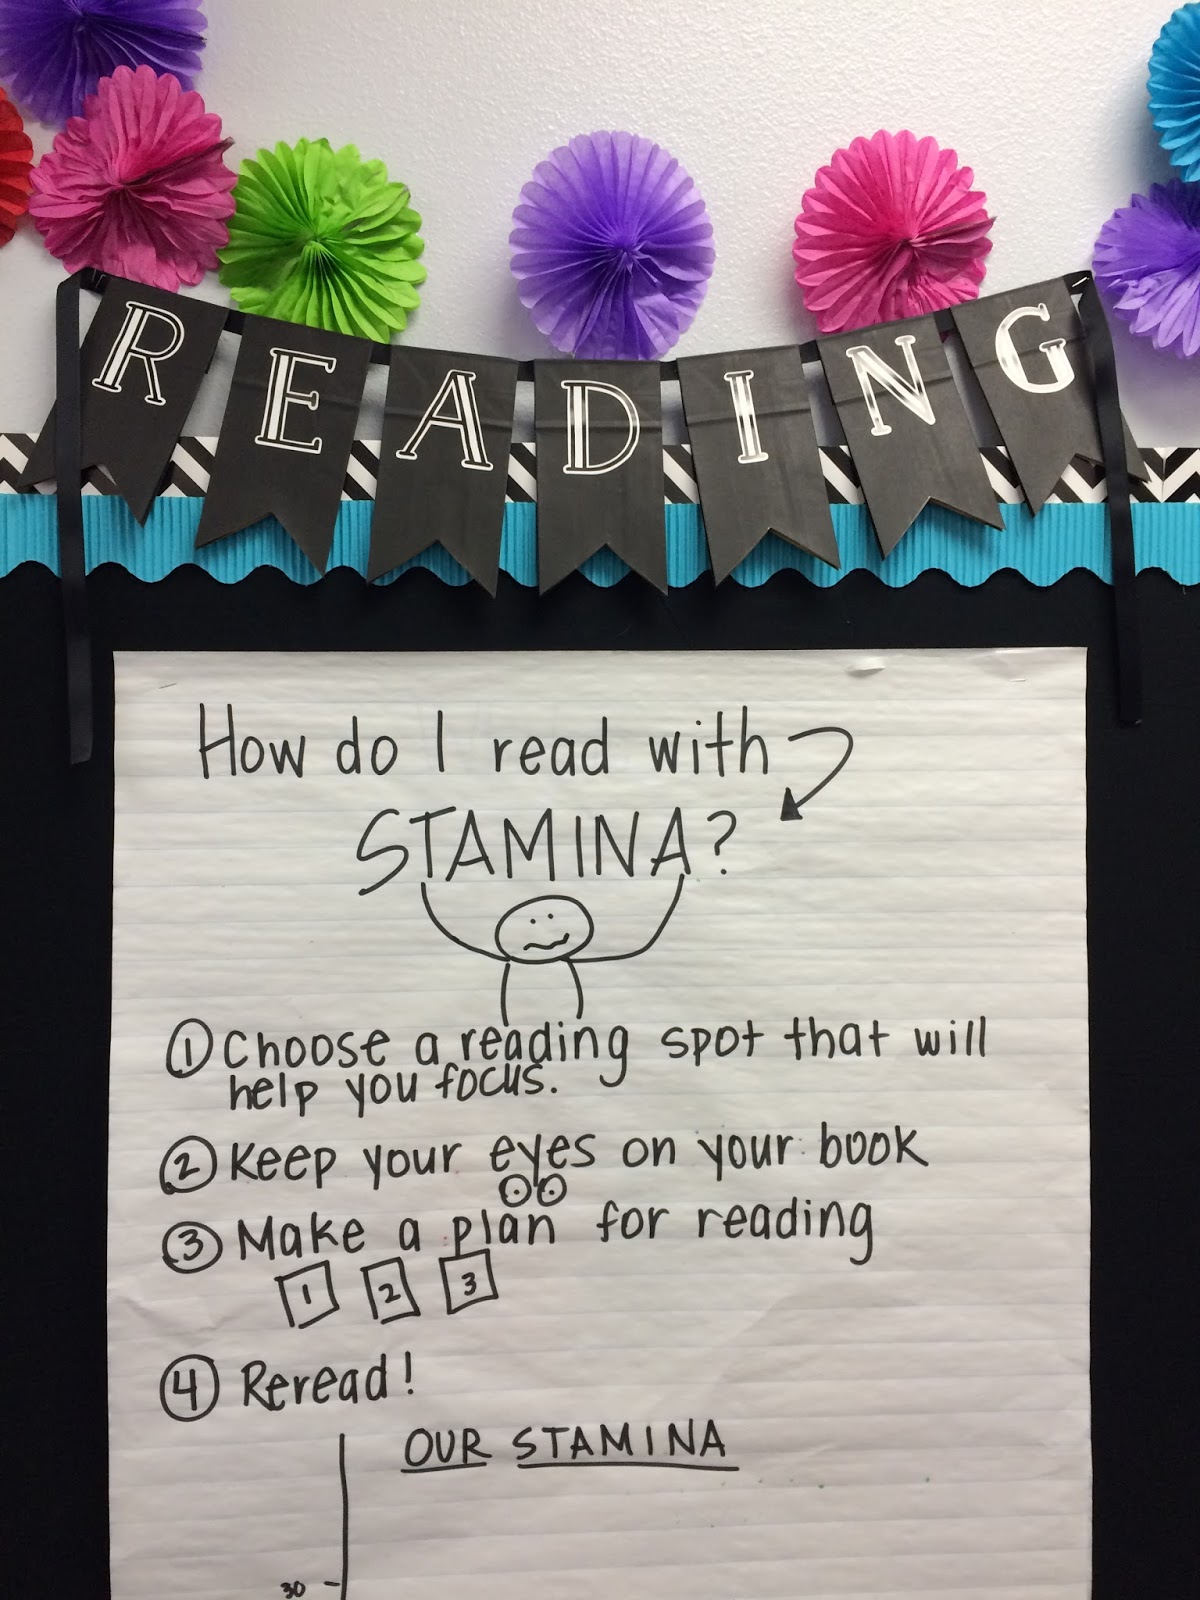 READING
How do I read with
STAMINA?
1 Choose a reading spot that will
help you focus.
2 Keep your eyes on your book
3 Make a plan for reading
1 2 3
4 Reread!
OUR STAMINA
30